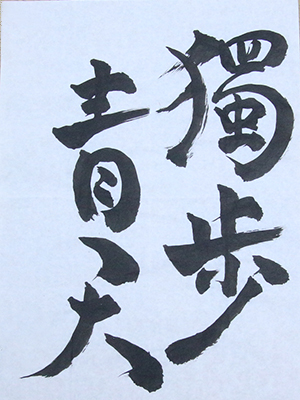 獨歩
青天